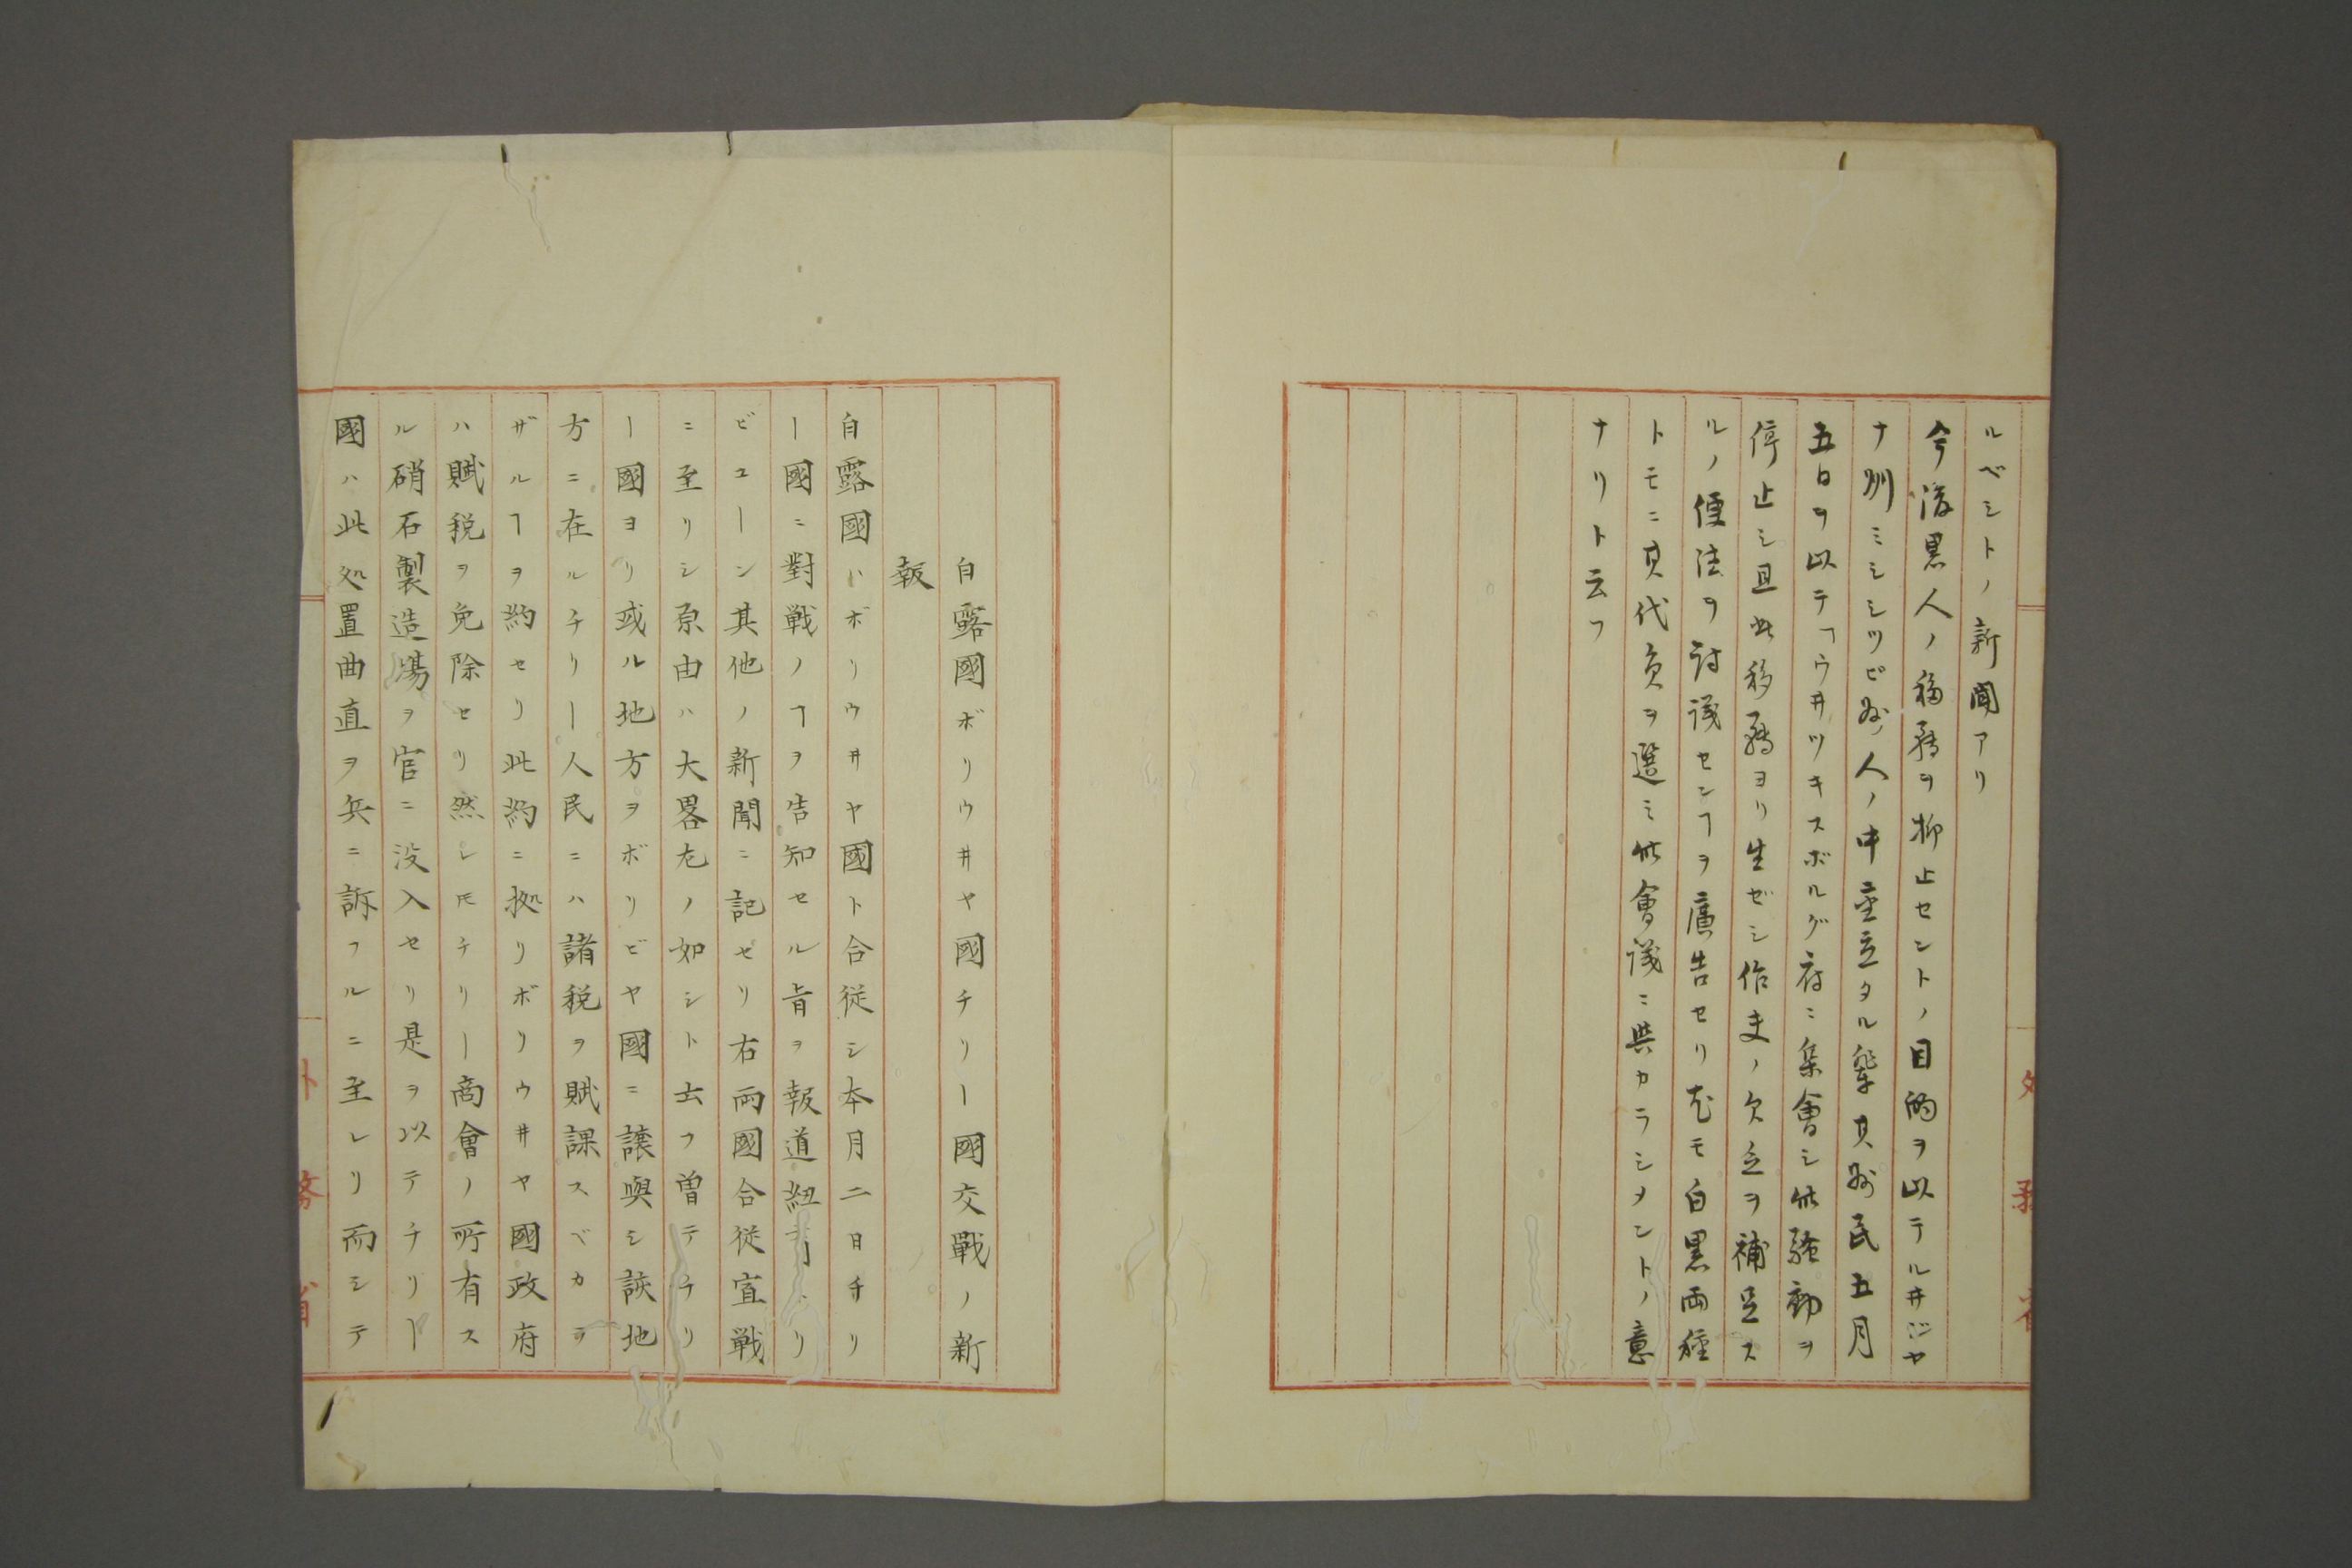 ルベシトノ新聞アリ
今後黒人ノ移轉ヲ抑止セントノ目的ヲ以テルヰジヤ
ナ州ミシシツピ州人ノ中重立タル輩其州民五月
五日ヲ以テ「ウヰツキスボルグ府ニ集會シ此騒動ヲ
停止シ且此移轉ヨリ生ゼシ作夫ノ欠乏ヲ補足ス
ルノ便法ヲ討議センヿヲ廣告セリ尤モ白黒両種
トモニ其代負ヲ選ミ此會議ニ與カラシメントノ意
ナリト云フ
外務省
白露國ボリウヰヤ國チリー國交戰ノ新
報
白露國ハボリウヰヤ國ト合従シ本月二日チリ
ー國ニ對戦ノヿヲ告知セル旨ヲ報道紐
ビユーン其他ノ新聞ニ記セリ右両國合従宣戦
ニ至リシ原由ハ大畧左ノ如シト云フ曽テチリ
ー國ヨリ或ル地方ヲボリビヤ國ニ譲與シ該地
方ニ在ルチリー人民ニハ諸税ヲ賦課スベカラ
ザルヿヲ約セリ此約ニ拠リボリウヰヤ國政府
ハ賦税ヲ免除セリ然レ𪜈チリー商會ノ所有ス
ル硝石製造場ヲ官ニ没入セリ是ヲ以テチリー
國ハ此処置曲直ヲ兵ニ訴フルニ至レリ而シテ
外務省